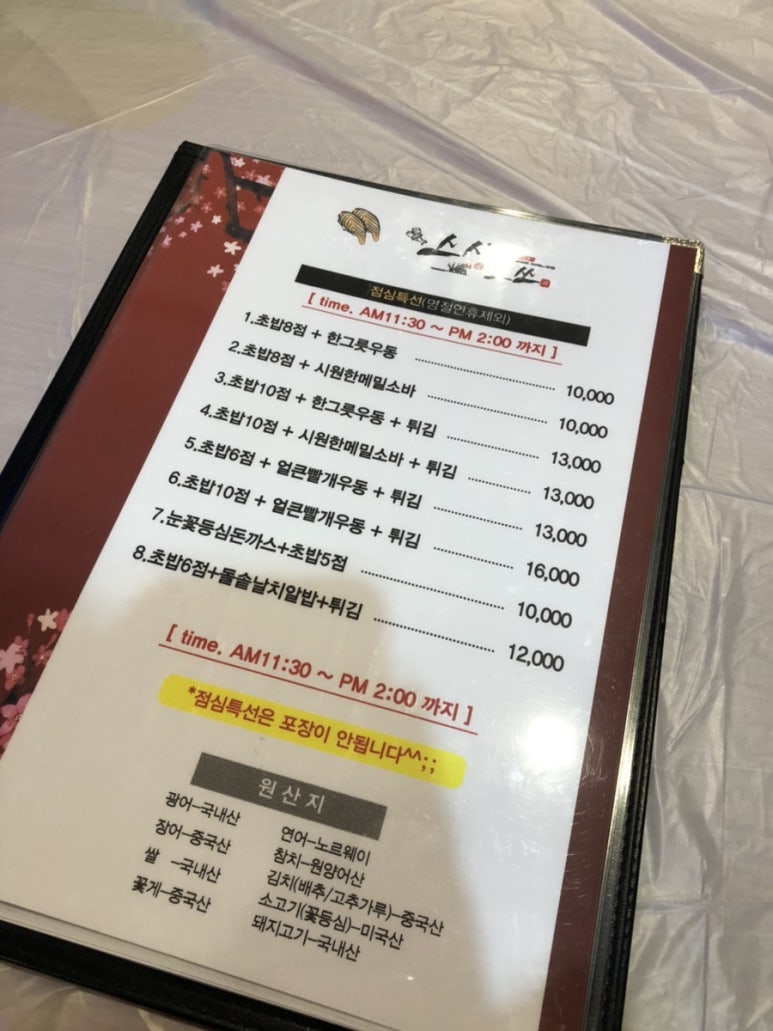 점심특선(명절연휴제외)
[ time. AM11:30 ~ PM 2:00 까지 ]
1.초밥8점 + 한그릇우동 10,000
2.초밥8점 + 시원한메밀소바 10,000
3.초밥10점 + 한그릇우동 + 튀김 13,000
4.초밥10점 + 시원한메밀소바 + 튀김 13,000
5.초밥6점 + 얼큰빨개우동 + 튀김 13,000
6.초밥10점 + 얼큰빨개우동 + 튀김 16,000
7.눈꽃등심돈까스+초밥5점 10,000
8.초밥6점+돌솥날치알밥+튀김 12,000
[ time. AM11:30 ~ PM 2:00 까지 ]
*점심특선은 포장이 안됩니다^^;;
원산지
광어-국내산
장어-중국산
쌀 -국내산
꽃게-중국산
연어-노르웨이
참치-원양어산
김치(배추/고추가루)-중국산
소고기(꽃등심)-미국산
돼지고기-국내산